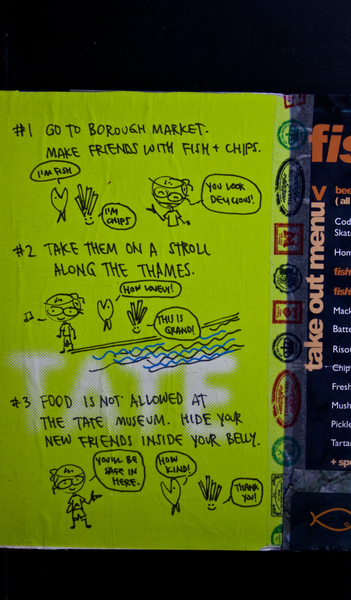 #1 GO TO BOROUGH MARKET.
MAKE FRIENDS WITH FISH + CHIPS.
I'M FISH
I'M
CHIPS
YOU LOOK
DELICIOUS!
#2 TAKE THEM ON A STROLL
ALONG THE THAMES.
HOW LOVELY!
THIS IS
GRAND!
TATE
#3 FOOD IS NOT ALLOWED AT
THE TATE MUSEUM. HIDE YOUR
NEW FRIENDS INSIDE YOUR BELLY.
YOU'LL BE
SAFE IN
HERE.
HOW
KIND!
THANK
YOU!
take out menu
fis
bee
( all
Cod
Skate
Hom
fish
fish
Mack
Batte
Risot
Chip
Fresh
Mush
Pickle
Tartar
+ spe